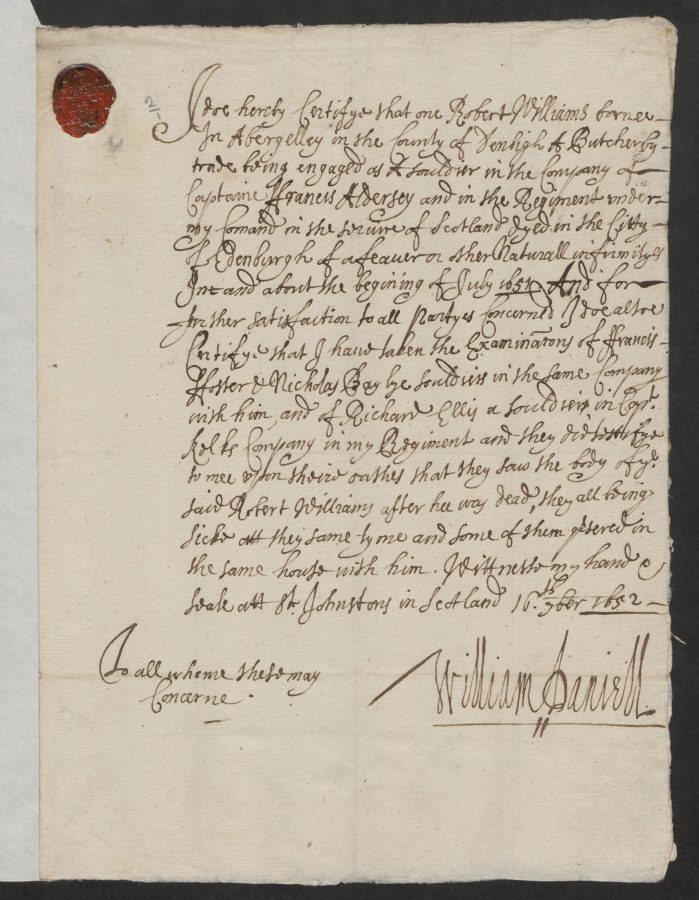 2/-
I doe hereby Certifye that one Robert Williams borne
In Abergelley in the County of Denbigh A Butcher by
trade being engaged as A souldier in the Company of
Captaine ffrancis Aldersey and in the Regiment under
my Comand in the servire of Scotland dyed in the Citty
of Edenburgh of a feaver or other Naturall infirmityes
In and about the begining of July 1651 And for
further satisfaction to all Partyes Concerned I doe alsoe
Certifye that I have taken the Examinacons of ffrancis
ffoster & Nicholas Baylye souldiers in the same Company
with him, and of Richard Ellis a souldier in Capt.
Kelks Company in my Regiment and they did testifye
to mee upon theire oathes that they saw the body of ye
said Robert Williams after hee was dead, they all being
sicke att they same tyme and some of them qrtered in
the same house with him. Wittnesse my hand &
seale att St. Johnstons in Scotland 16.th 7ber 1652
To all whome these may
Concerne.
William Daniell